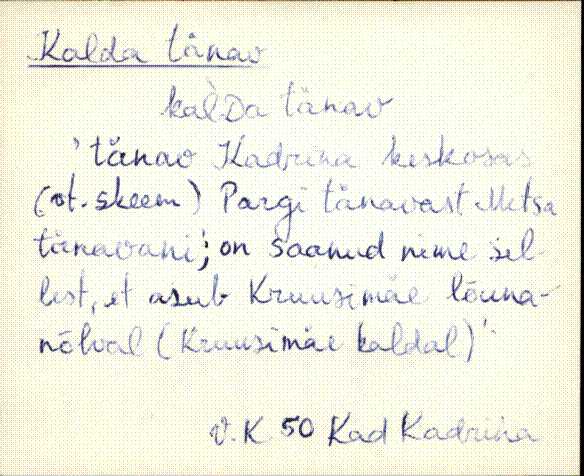 Kalda tänav
kal̀Da tänav
' tänav Kadrina keskosas
(vt. skeem) Pargi tänavast Metsa
tänavani; on saanud nime sel-
lest, et asub Kruusimäe lõuna-
nõlval (Kruusimäe kaldal)'.
V.K 50 Kad Kadrina